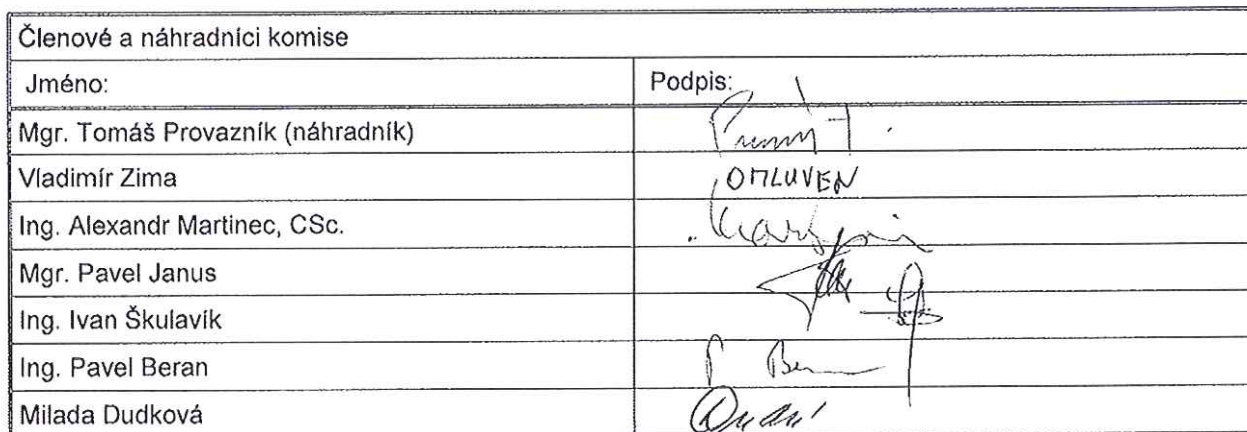 Členové a náhradníci komise
Jméno: Podpis:
Mgr. Tomáš Provazník (náhradník)
Vladimír Zima OMLUVEN
Ing. Alexandr Martinec, CSc.
Mgr. Pavel Janus
Ing. Ivan Škulavík
Ing. Pavel Beran P Ber
Milada Dudková